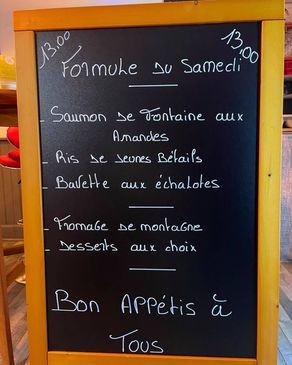 13.00
13,00
Formule du Samedi
- Saumon de Fontaine aux
Amandes
- Ris de Jeunes Bétails
- Bavette aux échalotes
- Fromage de montagne
- Desserts aux choix
Bon Appétis à
Tous